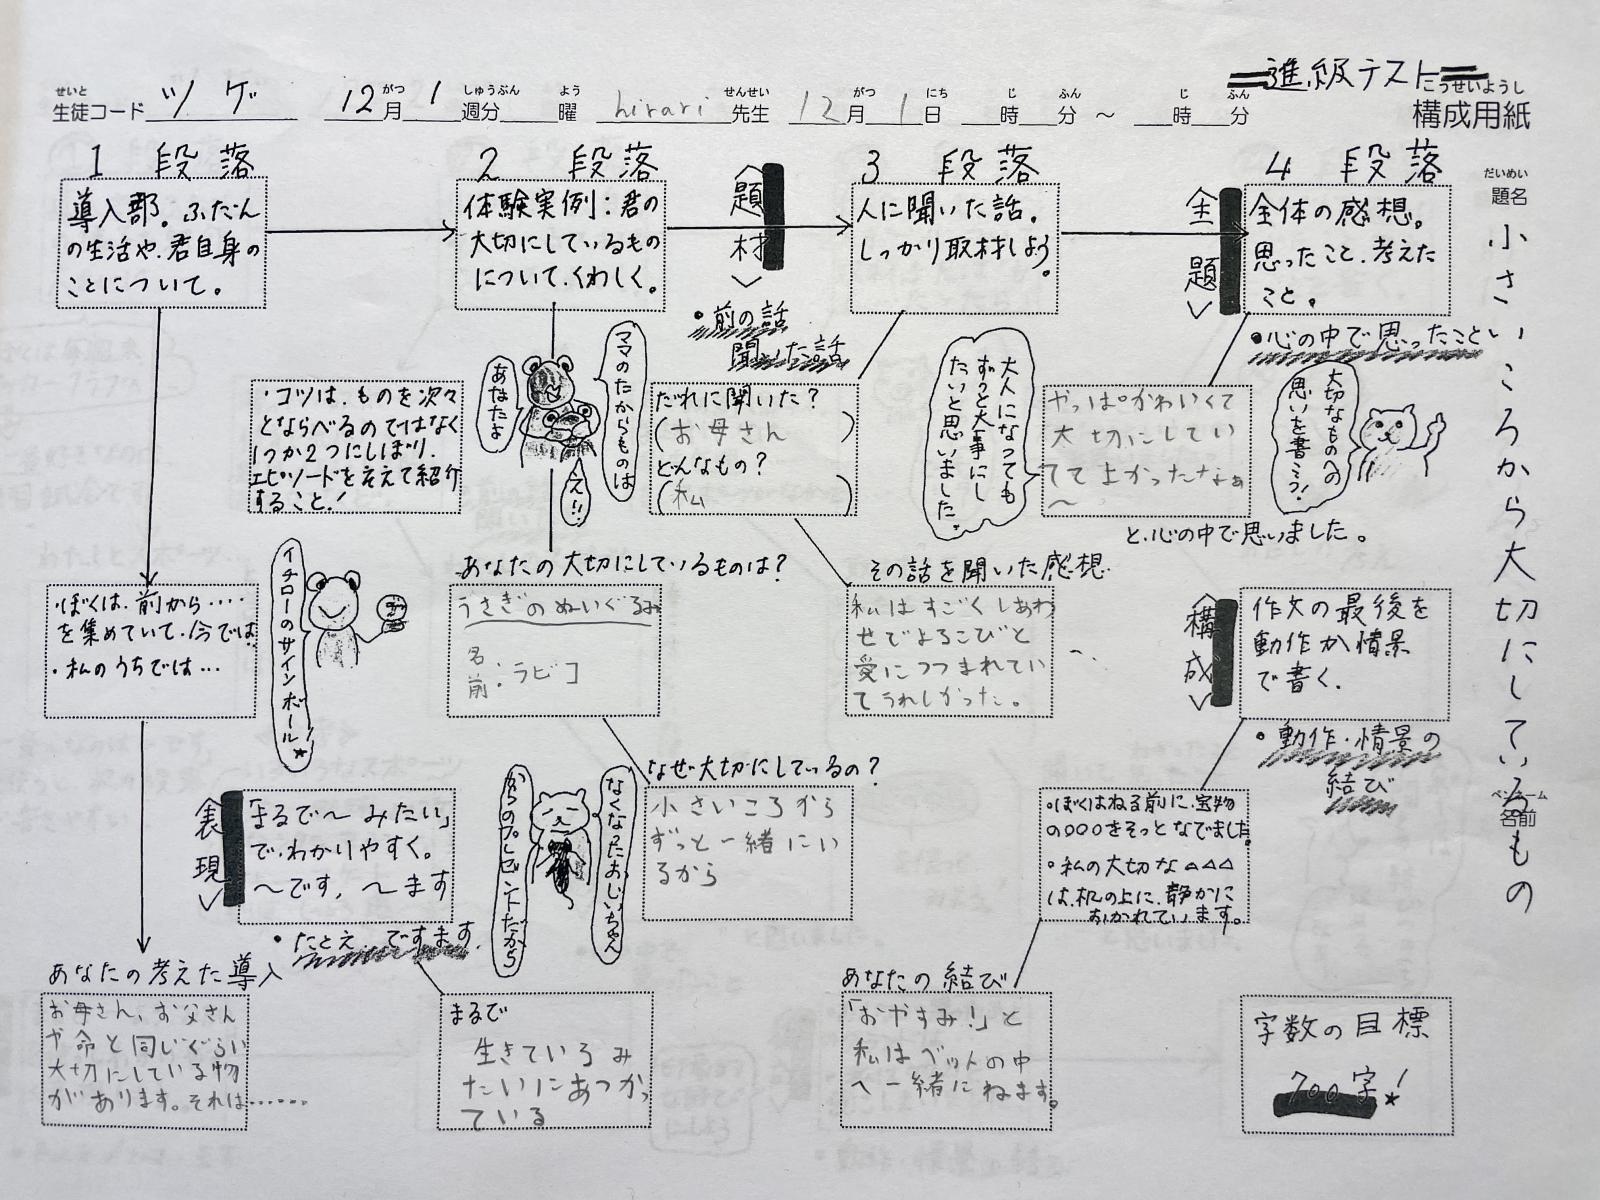 進級テスト
せいと
生徒コード ツゲ 12月 1週分 曜 hirari 先生 12月 1日 時 分 ～ 時 分
がつ しゅうぶん よう せんせい がつ にち じ ふん じ ふん
こうせいようし
構成用紙
だいめい
題名
小さいころから大切にしているもの
ペンネーム
名前
1 段落
導入部。ふだん
の生活や、君自身の
ことについて。
2 段落
体験実例：君の
大切にしているもの
について、くわしく。
〈題材〉
・前の話
聞いた話
3 段落
人に聞いた話。
しっかり取材しよう。
〈主題〉
4 段落
全体の感想。
思ったこと、考えた
こと。
・心の中で思ったこと
・コツは、ものを次々
とならべるのではなく
1つか2つにしぼり、
エピソードをそえて紹介
すること！
ママのたからものは
あなたよ
え!!
だれに聞いた？
（お母さん）
どんなもの？
（私）
大人になっても
ずっと大事にし
たいと思いました。
やっぱかわいくて
大切にしてい
てて よかったなぁ
～
と、心の中で思いました。
大切なものへの
思いを書こう！
・ぼくは、前から‥‥
を集めていて、今では
・私のうちでは…
イチローのサインボール！
あなたの大切にしているものは？
うさぎのぬいぐるみ
名前：ラビコ
その話を聞いた感想
私はすごくしあわ
せでよろこびと
愛につつまれてい
てうれしかった。
〈構成〉
作文の最後を
動作か情景
で書く。
・動作・情景の
結び
〈表現〉
「まるで～みたい」
で、わかりやすく。
～です、～ます
・たとえ ですます
なくなったおじいちゃん
からのプレゼントだから
なぜ大切にしているの？
小さいころから
ずっと一緒にい
るから
・ぼくはねる前に、宝物
の○○○をそっとなでました。
・私の大切な△△△
は、机の上に、静かに
おかれています。
あなたの考えた導入
お母さん、お父さん
や命と同じぐらい
大切にしている物
があります。それは……
まるで
生きているみ
たいにあつかっ
ている
あなたの結び
「おやすみ！」と
私はベットの中
へ一緒にねます。
字数の目標
700字！